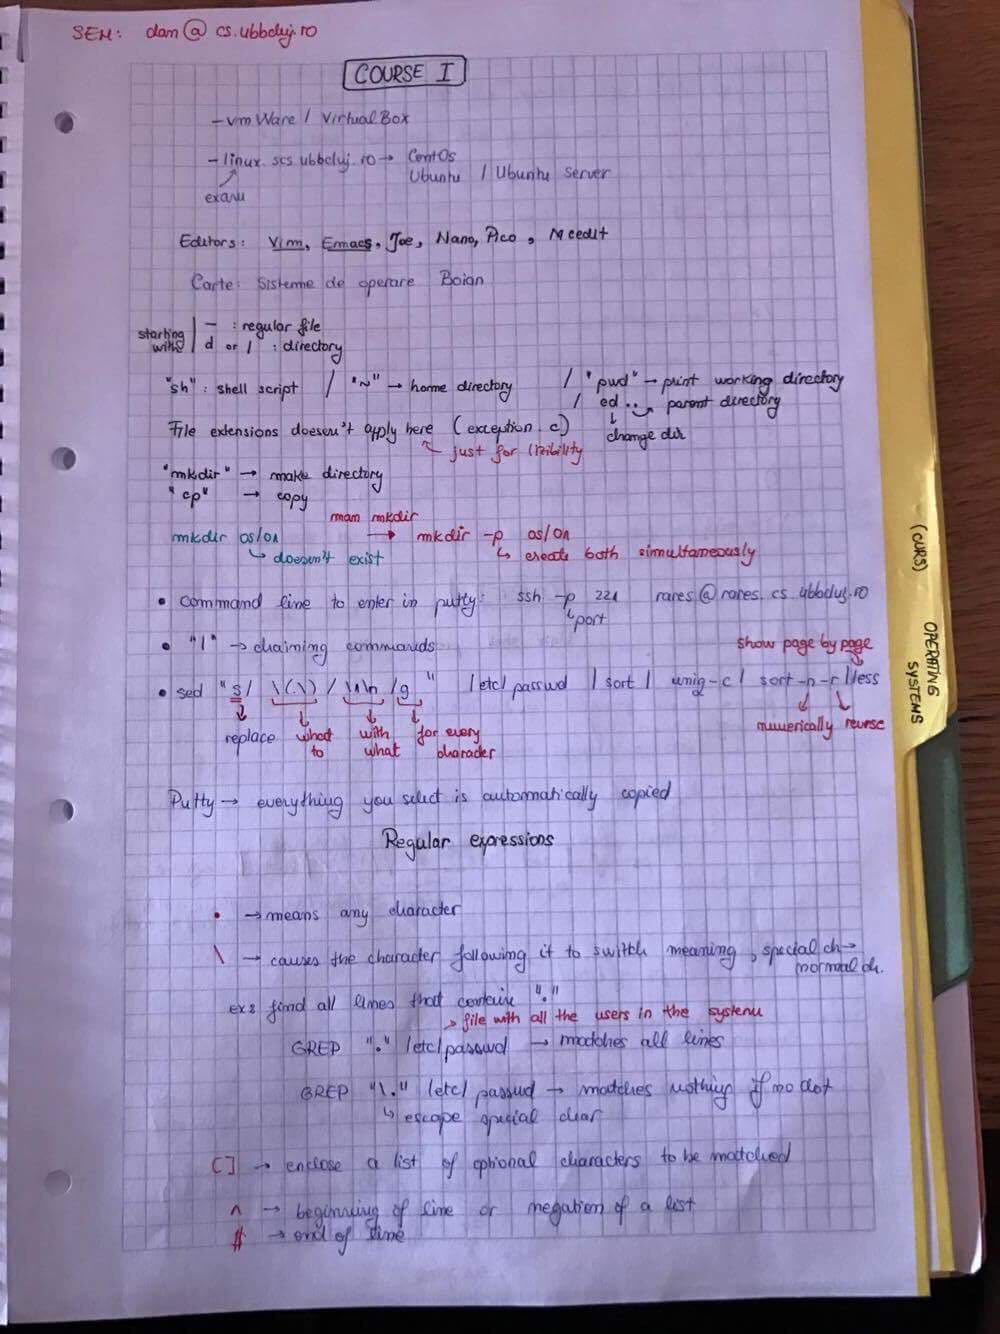 SEM: dan@cs.ubbcluj.ro
COURSE I
- vmWare / VirtualBox
- linux.scs.ubbcluj.ro → CentOs
Ubuntu / Ubuntu Server
exam
Editors: Vim, Emacs, Joe, Nano, Pico, Mcedit
Carte: Sisteme de operare Boian
starting with | - : regular file
d or l : directory
"sh": shell script / "~" → home directory / "pwd" → print working directory
/ cd .. → parent directory
change dir
File extensions doesen't apply here (exception .c)
just for lizibility
"mkdir" → make directory
"cp" → copy
man mkdir
mkdir os/on → mkdir -p os/on
doesen't exist
create both simultaneously
• command line to enter in putty: ssh -p 221 rares@rares.cs.ubbcluj.ro
port
• "|" → chaining commands
show page by page
• sed "s/ \(.\) / \1\n /g " /etc/passwd | sort | uniq -c | sort -n -r | less
replace what to with what for every character
numerically reverse
Putty → everything you select is automatically copied
Regular expressions
. → means any character
\ → causes the character following it to switch meaning, special ch →
normal ch.
ex: find all lines that contain "."
file with all the users in the system
GREP "." /etc/passwd → matches all lines
GREP "\." /etc/passwd → matches nothing if no dot
escape special char
[] → enclose a list of optional characters to be matched
^ → beginning of line or negation of a list
$ → end of line
(CURS)
OPERATING
SYSTEMS